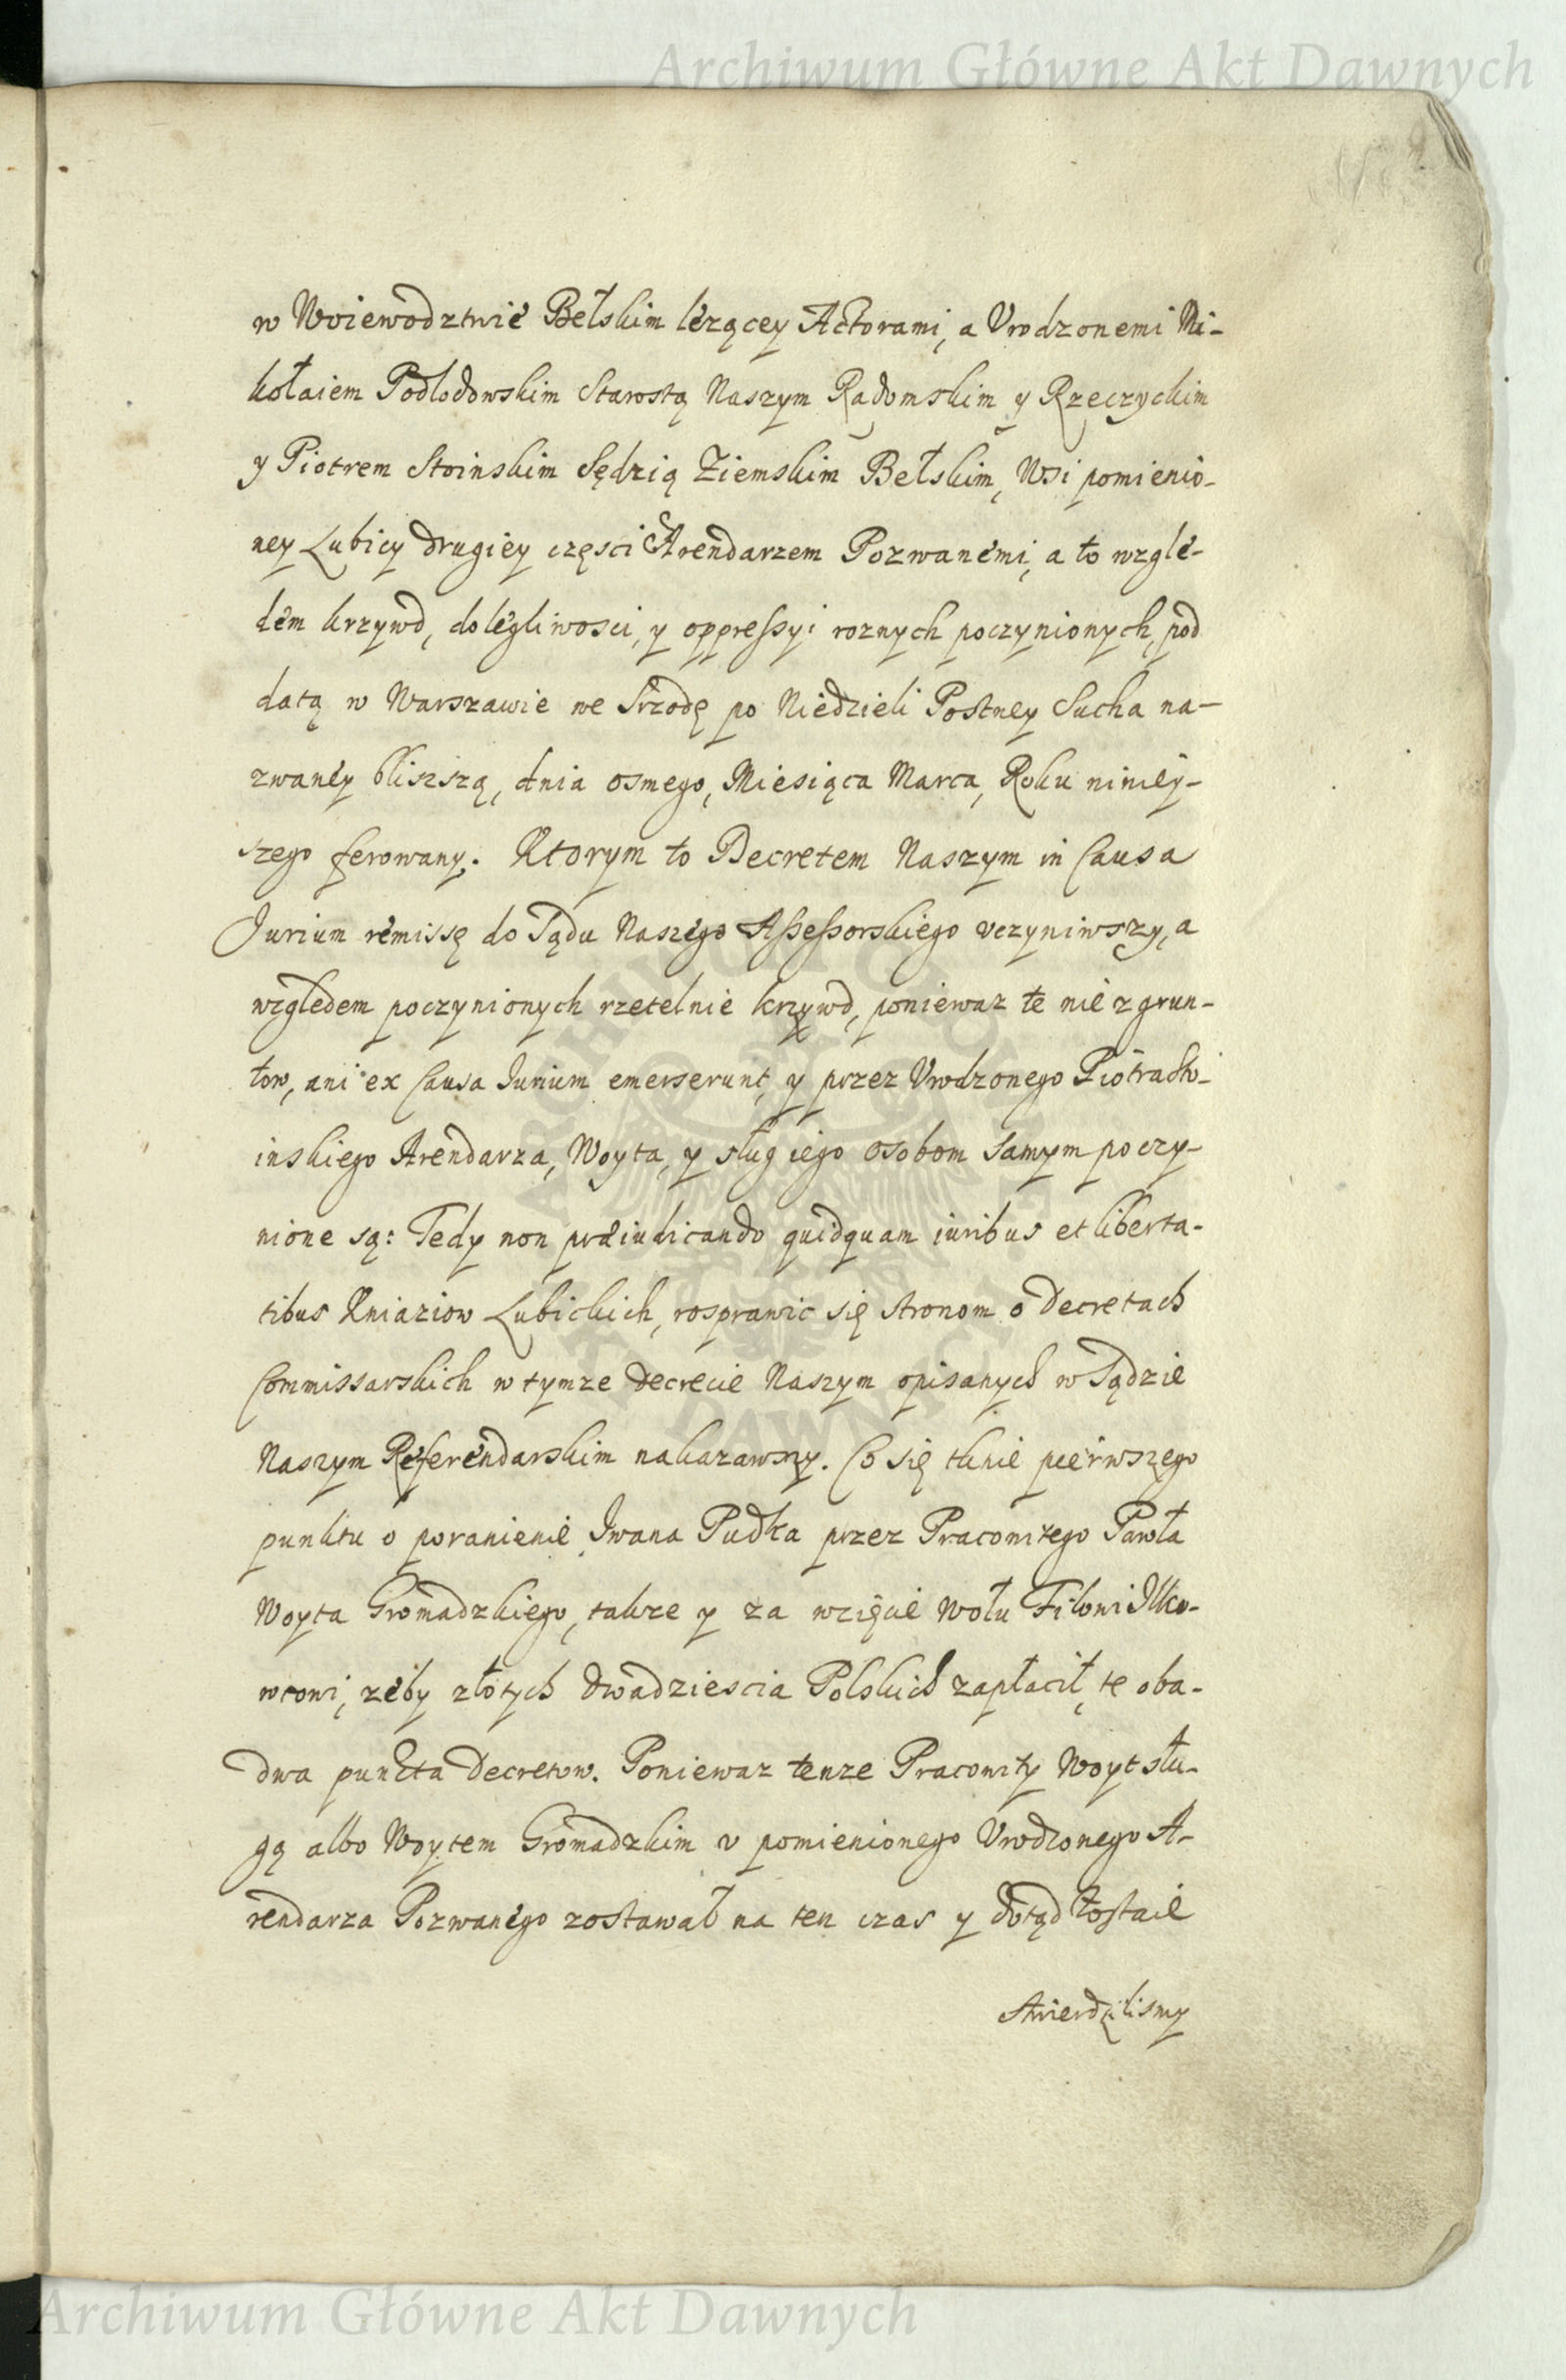 Archiwum Główne Akt Dawnych
w Woiewodztwie Bełskim lezącey Actorami, a Vrodzonemi Mi-
kołaiem Podlodowskim Starostą Naszym Radomskim y Rzeczyckim
y Piotrem Stoinskim Sędzią Ziemskim Bełskim, Wsi pomienio-
ney Lubicy drugiey częsci Arendarzem Pozwanemi, a to wzglę-
dem krzywd, dolegliwosci, y oppressyi roznych poczynionych, pod
datą w Warszawie we Srzodę po Niedzieli Postney Sucha na-
zwaney bliszszą, dnia osmego, Miesiąca Marca, Roku niniey-
szego ferowany. Ktorym to Decretem Naszym in Causa
Jurium remissę do Sądu Naszego Assessorskiego vczyniwszy, a
względem poczynionych rzetelnie krzywd, poniewaz te nie z grun-
tow, ani ex Causa Jurium emerserunt, y przez Vrodzonego Piotra Sto-
inskiego Arendarza, Woyta, y sług iego osobom samym poczy-
nione są: Tedy non præiudicando quidquam iuribus et liberta-
tibus Kniaziow Lubickich, rosprawic się stronom o Decretach
Commissarskich w tymze Decrecie Naszym opisanych w Sądzie
Naszym Referendarskim nakazawszy. Co się tknie pierwszego
punktu o poranienie Iwana Pudka przez Pracowitego Pawła
Woyta Gromadzkiego, takze y za wzięcie wołu Filowi Ilko-
wtowi, zeby złotych dwadziescia Polskich zapłacił, te oba-
dwa puncta Decretow. Poniewaz tenze Pracowity Woyt słu-
gą albo Woytem Gromadzkim v pomienionego Vrodzonego A-
rendarza Pozwanego zostawał na ten czas y dotąd zostaie
stwierdzilismy
Archiwum Główne Akt Dawnych